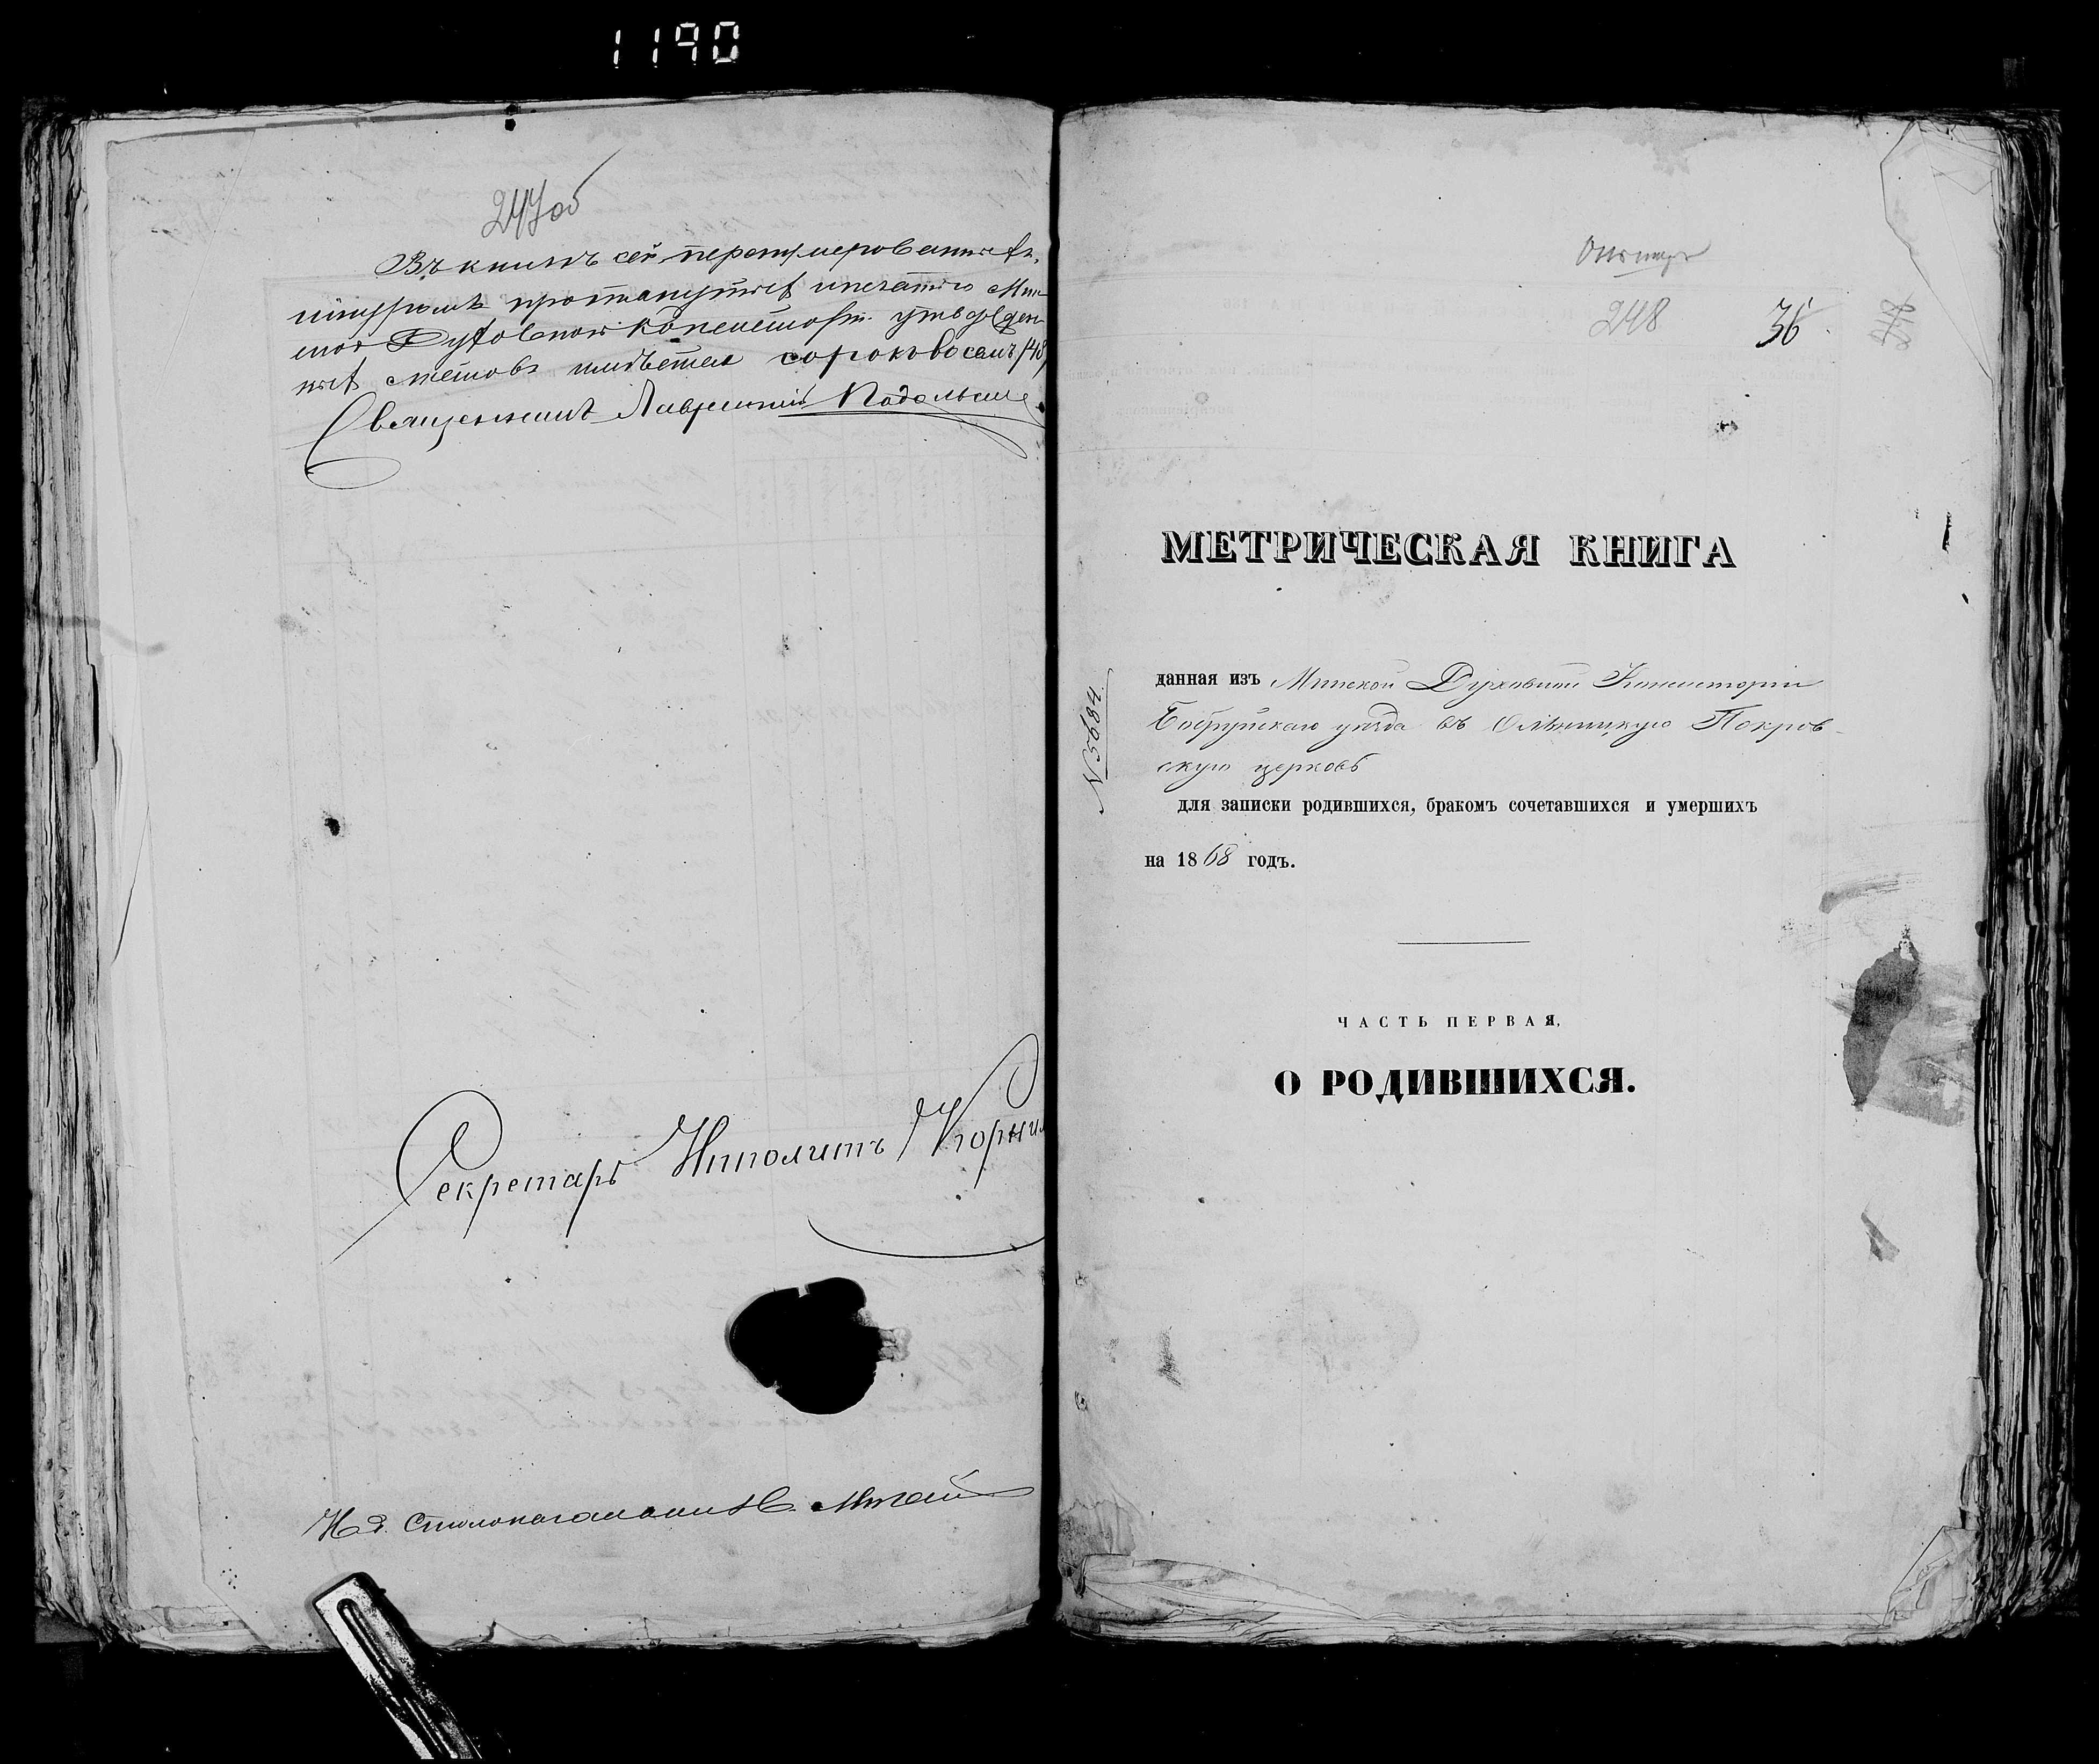 1190
247об
Въ книгѣ сей перенумерованныхъ,
шнуромъ протянутыхъ и печатью Мин
ской Духовной Консисторіи утвержден
ныхъ листовъ имѣется сорокъ восемь /48/
Священникъ Лаврентій Подольскі
Секретарь Ипполитъ Корнил
И. д. Столоначальника
248
36
248
МЕТРИЧЕСКАЯ КНИГА
№ 5684
данная изъ Минской Духовной Консисторіи
Бобруйскаго уѣзда въ Покров-
скую церковь
для записки родившихся, бракомъ сочетавшихся и умершихъ
на 1868 годъ.
ЧАСТЬ ПЕРВАЯ,
О РОДИВШИХСЯ.